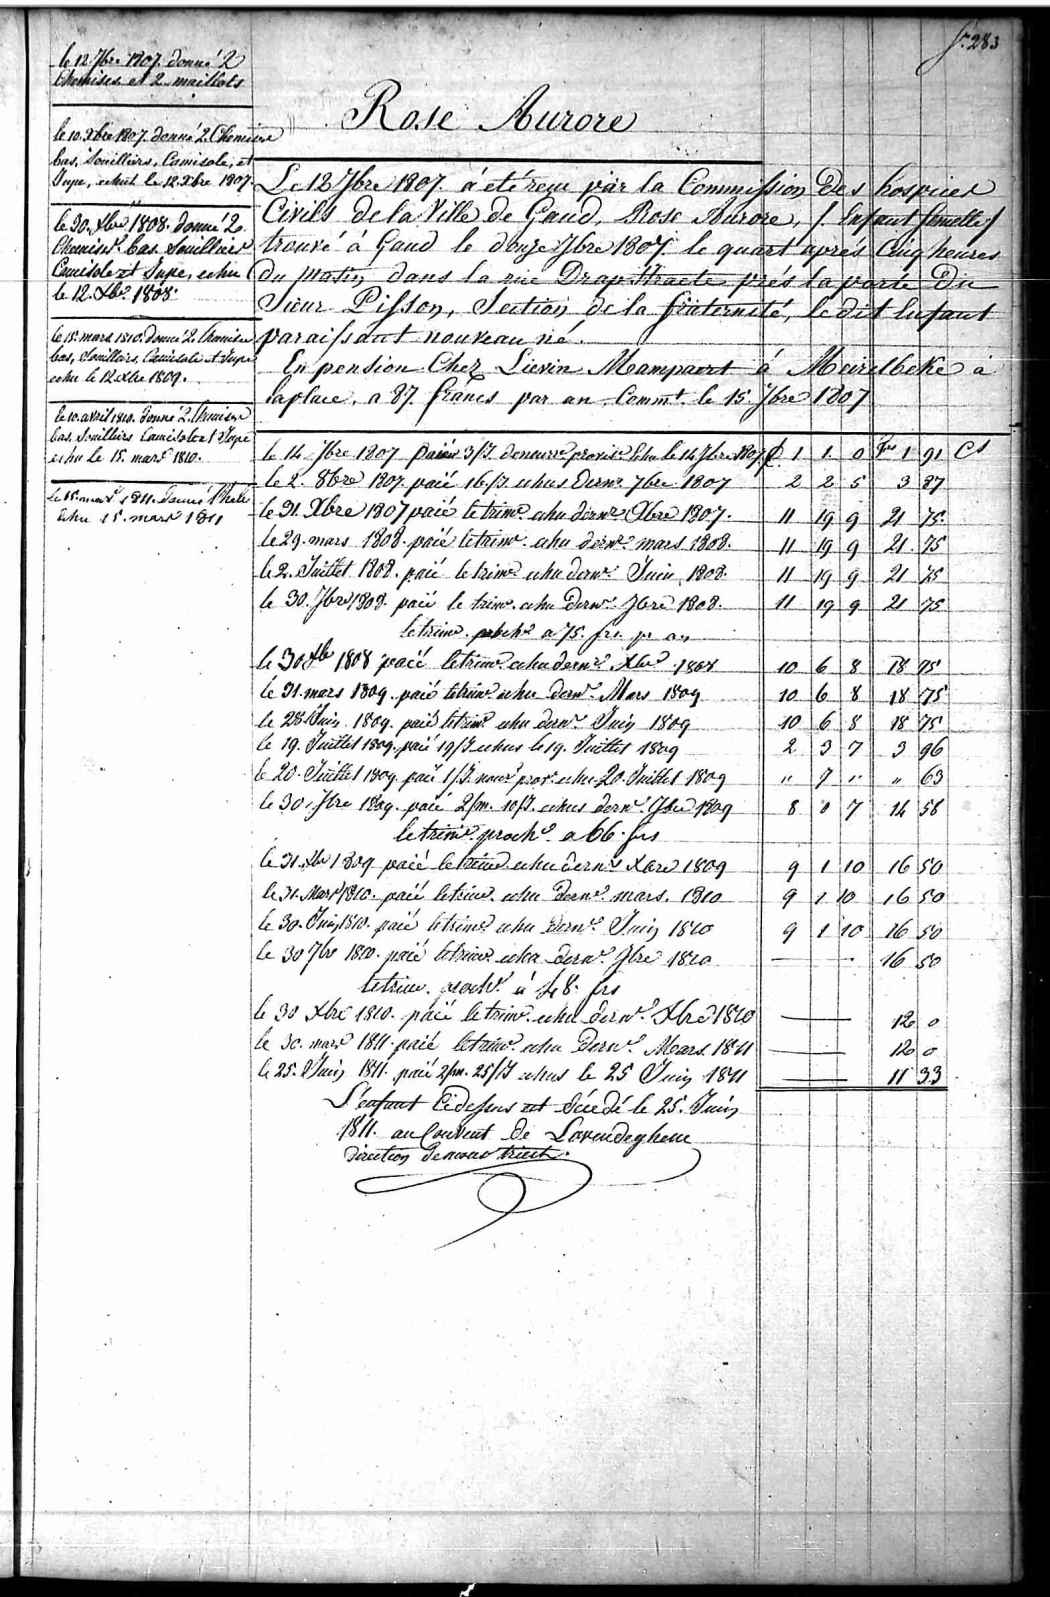 f° 283
le 12 7bre 1807. donné 2
Chemises et 2 maillots
le 10. Xbre 1807. donné 2. Chemise
bas, Souilliers, Camisole, et
Jupe, echut le 12 Xbre 1807.
le 30. Xbre 1808. donné 2
Chemises. bas. Souilliers
Camisole et Jupe, echu
le 12. Xbre 1808.
le 15. mars 1810. donné 2. Chemise
bas, Souilliers, Camisole et Jupe
echu le 12 Xbre 1809.
le 10. avril 1810. donné 2. Chemise
bas, Souilliers Camisole et Jupe
echu le 15. mars 1810.
le 15. mars 1811. donné
echu 15. mars 1811
Rose Aurore
Le 12 7bre 1807. a été reçu par la Commission des hospices
Civils de la Ville de Gand, Rose Aurore, /. Enfant femelle /
trouvé à Gand le douze 7bre 1807. le quart après Cinq heures
du matin, dans la rue Drapstraete près la porte du
Sieur Pisson, Section de la fraternité, le dit Enfant
paraissant nouveau né.
En pension Chez Lievin Mampaert à Meirelbeke à
la place, a 87. francs par an. Commt. le 15. 7bre 1807
le 14 7bre 1807 paié 3/J. echu le 14 7bre 1807. £ 1 1 0 frs 1 91 Cs
le 2. 8bre 1807. paié 16/J. echus dernr. 7bre 1807 2 2 5 3 87
le 31. Xbre 1807 paié le trimr. echu dernr. Xbre 1807. 11 19 9 21 75
le 29. mars 1808. paié le trimr. echu dernr. mars 1808. 11 19 9 21 75
le 2. Juillet 1808. paié le trimr. echu dernr. Juin 1808. 11 19 9 21 75
le 30. 7bre 1808. paié le trimr. echu dernr. 7bre 1808. 11 19 9 21 75
le trimr. proche a 75. frs. pr. an
le 30 Xbre 1808 paié le trimr. echu dernr. Xbre 1808 10 6 8 18 75
le 31. mars 1809. paié le trimr. echu dernr. Mars 1809 10 6 8 18 75
le 28 Juin 1809. paié le trimr. echu dernr. Juin 1809 10 6 8 18 75
le 19. Juillet 1809. paié 19/J. echus le 19. Juillet 1809 2 3 7 3 96
le 20. Juillet 1809. paié 1/J. nour. prov. echu 20. Juillet 1809 " 7 " " 63
le 30 7bre 1809. paié 2/m. 10/J. echus dernr. 7bre 1809 8 0 7 14 58
le trimr. proche a 66. frs
le 31. Xbre 1809 paié le trimr. echu dernr. Xbre 1809 9 1 10 16 50
le 31. Mars 1810. paié le trimr. echu dernr. mars. 1810 9 1 10 16 50
le 30. Juin 1810. paié le trimr. echu dernr. Juin 1810 9 1 10 16 50
le 30 7bre 1810. paié le trimr. echu dernr. 7bre 1810 16 50
le trimr. proche. à 48. frs
le 30 Xbre 1810. paié le trimr. echu dernr. Xbre 1810 12 0
le 30. mars 1811. paié le trimr. echu dernr. Mars. 1811 12 0
le 25. Juin 1811. paié 2/m. 25/J. echus le 25 Juin 1811 11 33
L'enfant Cidessus est décedé le 25. Juin
1811. au Couvent de Lovendeghem
direction de mons triest.